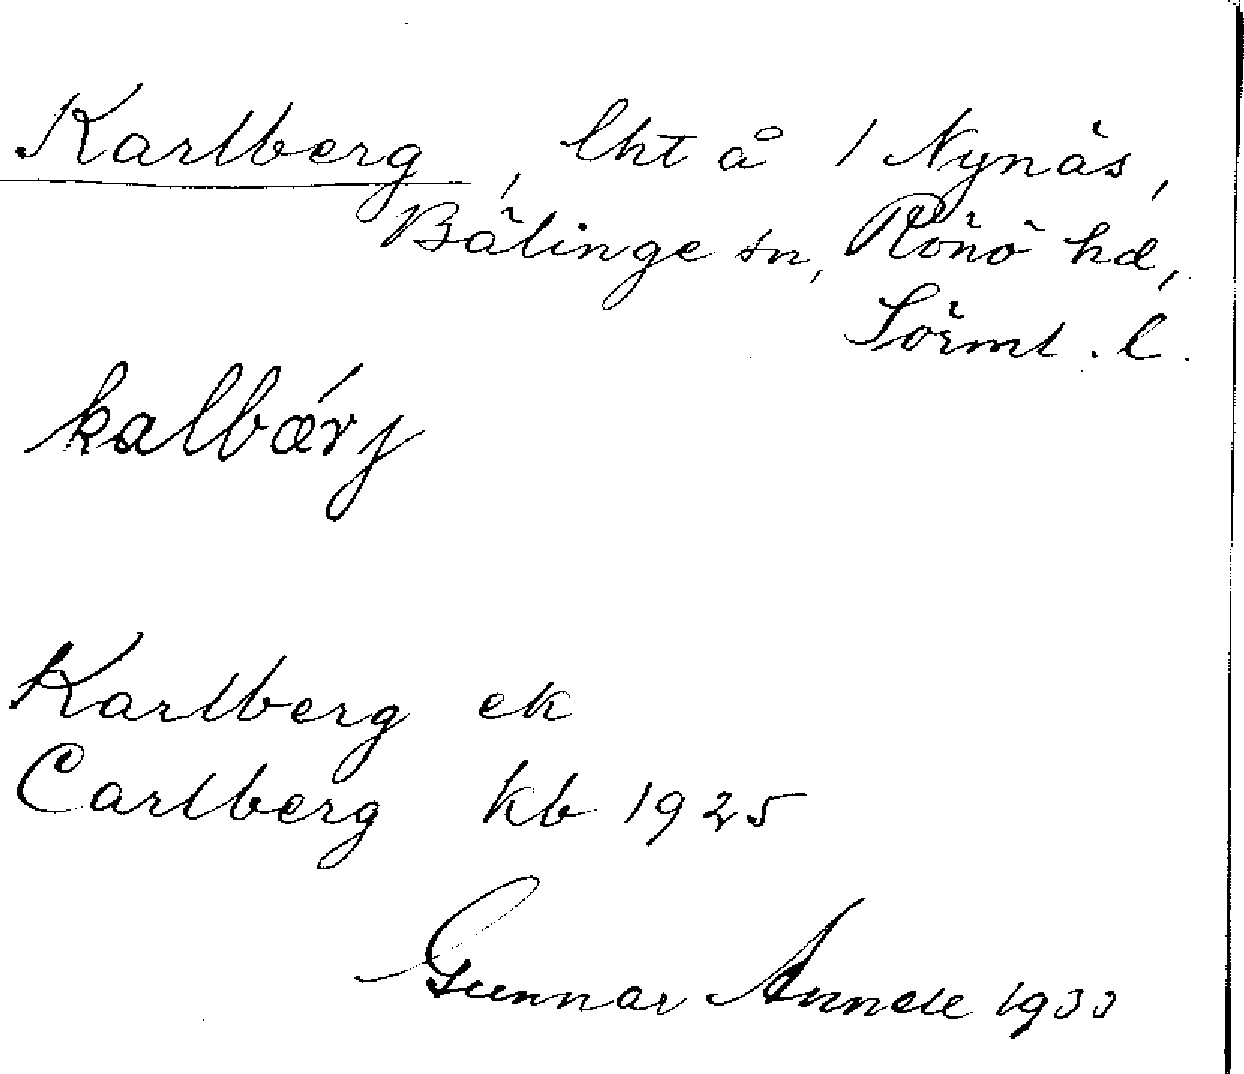 Karlberg, lht å 1 Nynäs,
Bälinge sn, Rönö hd,
Sörml. l.
kalbǽrj
Karlberg ek
Carlberg kb 1925
Gunnar Annell 1933